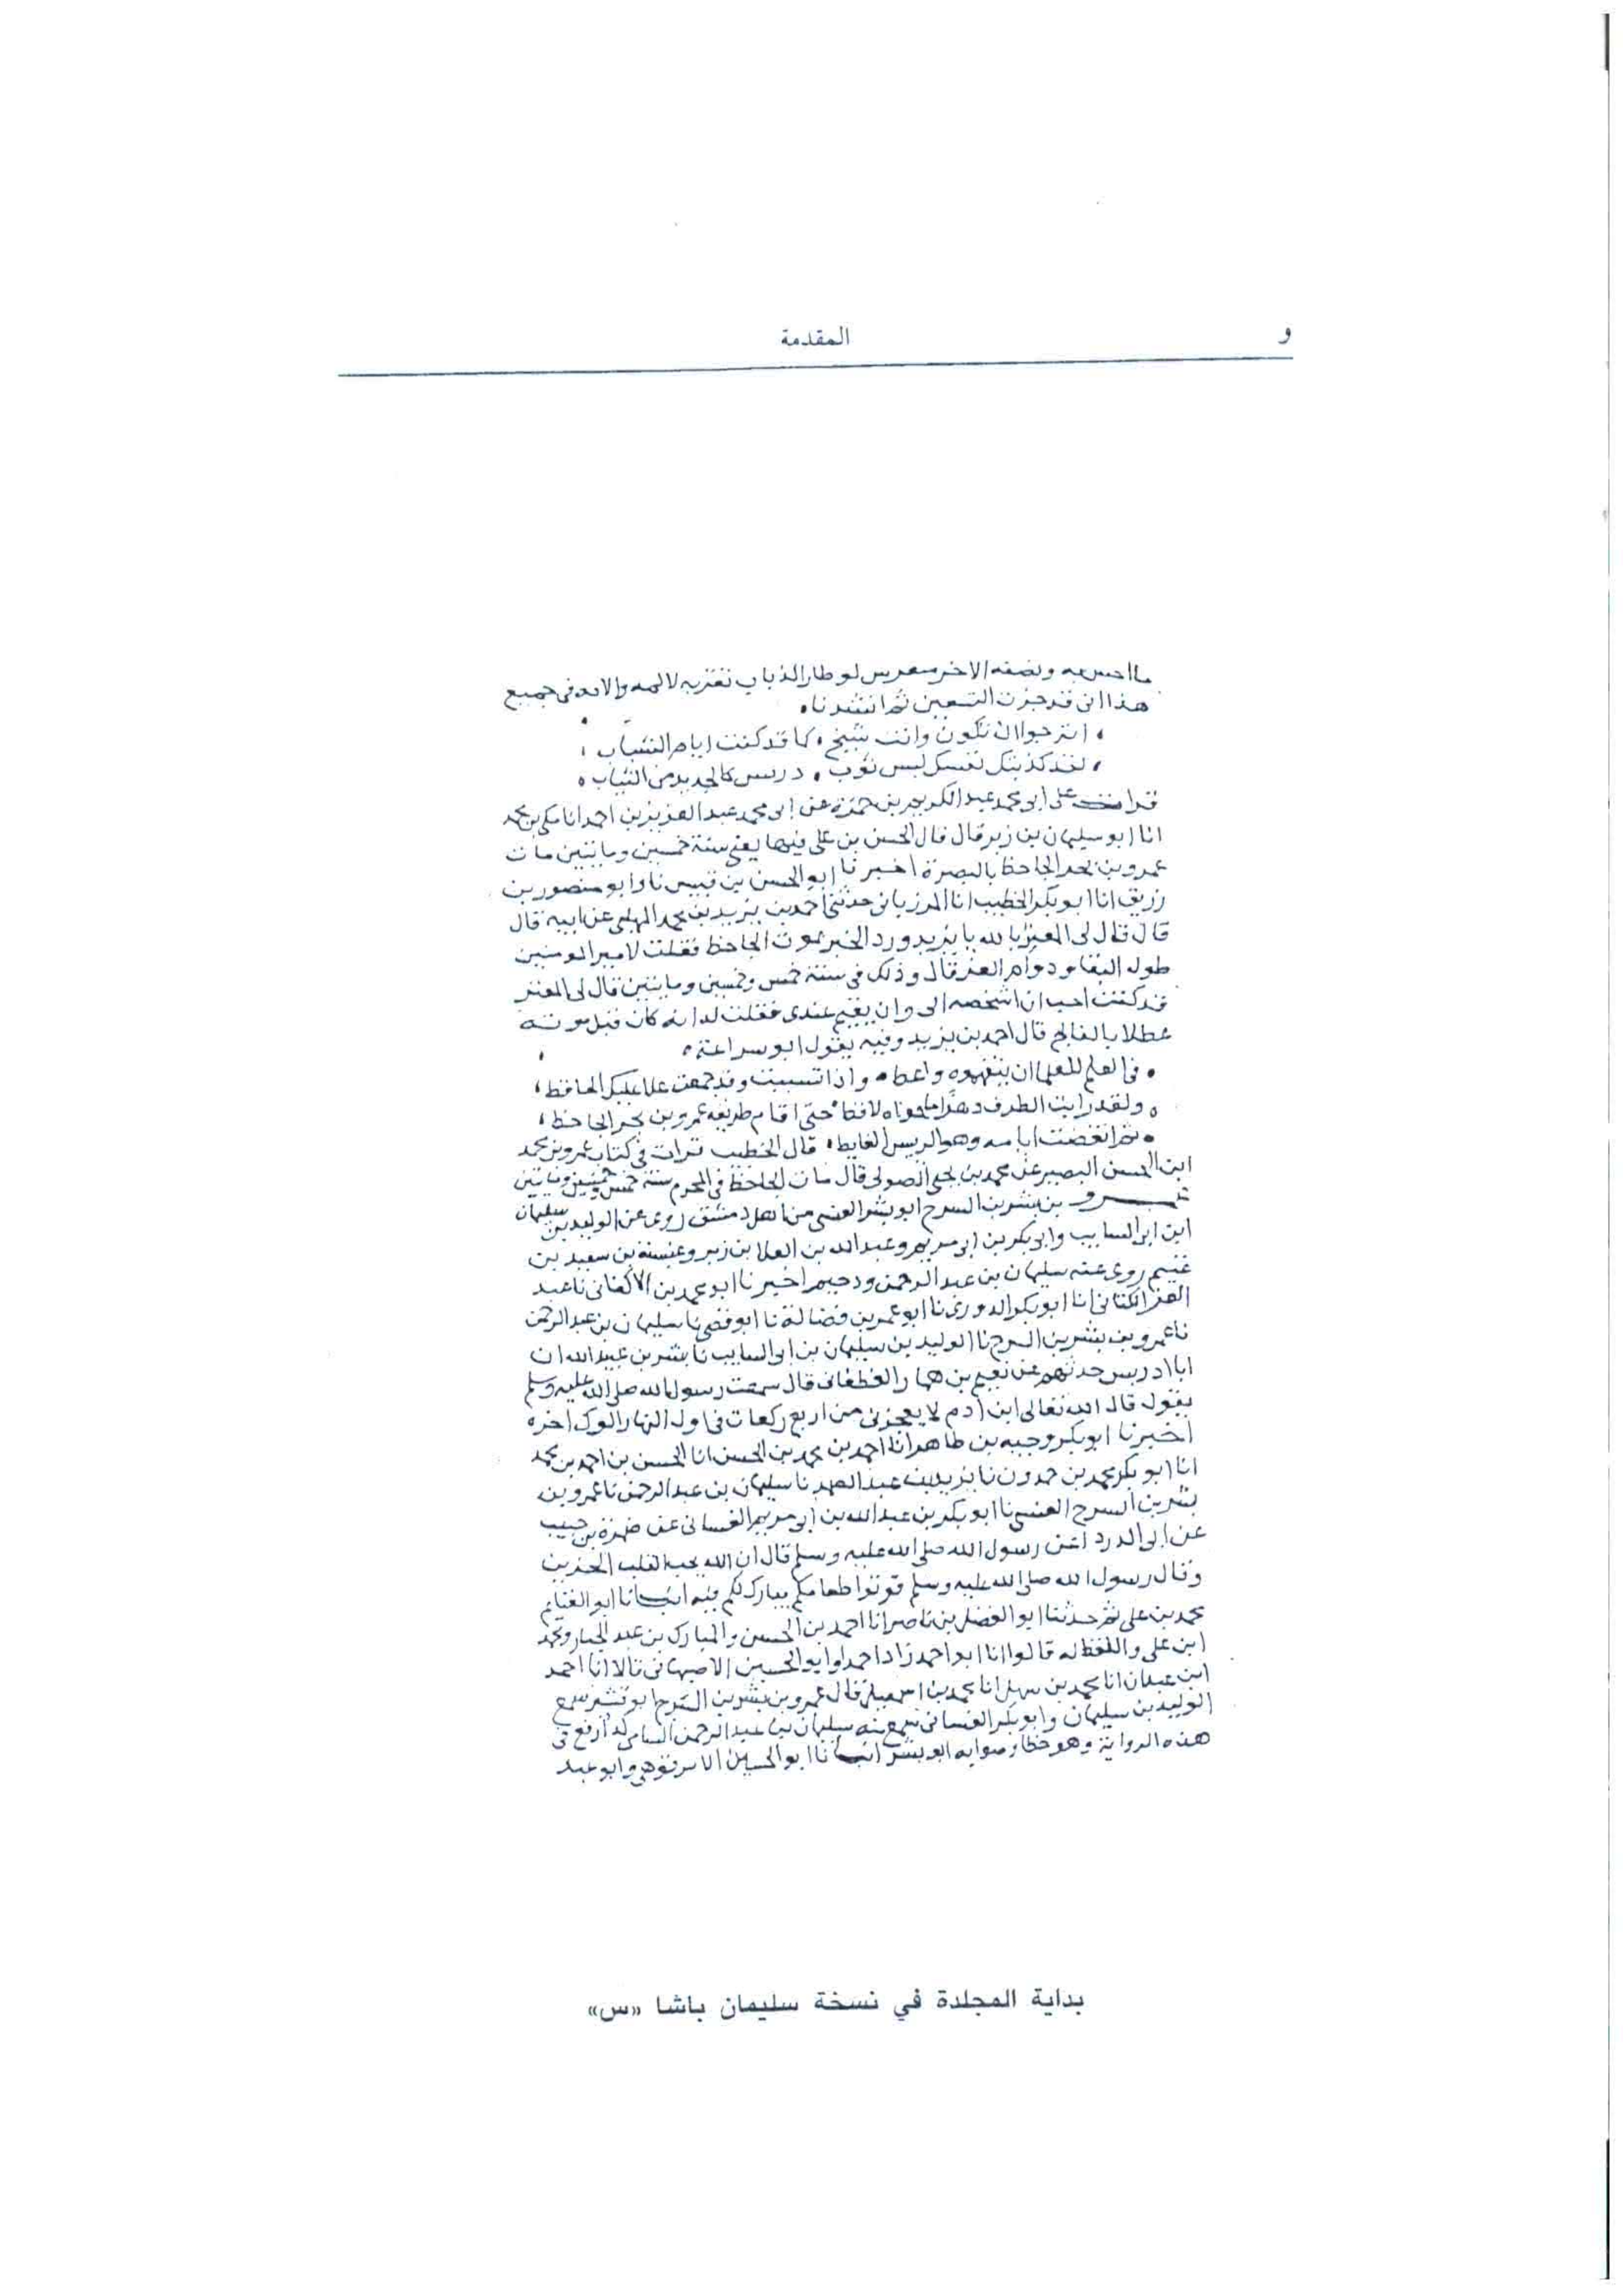 و
المقدمة
ما احس به ونصفه الاخر لو طار الذباب بقربه لالمه والامر فى جميع
هذا انى قد جزت التسعين ثم انشدنا ه
اترجوا ان تكون وانت شيخ ه كما قد كنت ايام الشباب
لقد كذبتك نفسك ليس ثوب ه دريس كالجديد من الثياب ه
قرات على ابى محمد عبد الكريم بن حمزة عن ابى محمد عبد العزيز بن احمد انا مكى بن محمد
انا ابو سليمان بن زبر قال قال الحسن بن على فيها يعنى سنة خمسين ومايتين مات
عمرو بن بحر الجاحظ بالبصرة اخبرنا ابو الحسن بن قبيس نا وابو منصور بن
زريق انا ابو بكر الخطيب انا المرزبانى حدثنى احمد بن يزيد بن محمد المهلبى عن ابيه قال
قال قال لى المعتز بالله يا يزيد ورد الخبر بموت الجاحظ فقلت لامير المومنين
طول البقا ودوام العز قال وذلك فى سنة خمس وخمسين ومايتين قال لى المعتز
قد كنت احب ان اشخصه الى وان يقيم عندى فقلت له انه كان قبل موته
عطلا بالفالج قال احمد بن يزيد وفيه يقول ابو سراعة ه
فى العلم للعلما ان يتفهموه واعظ ه واذا نسيت وقد جمعت علا عليك الحافظ
ولقد رايت الظرف دهرا ما حواه لافظ ه حتى اقام طريقه عمرو بن بحر الجاحظ
ثم انقضت ايامه وهو الريس الغايظ ه قال الخطيب قرات فى كتاب عمرو بن محمد
ابن الحسن البصير عن محمد بن يحيى الصولى قال مات الجاحظ فى المحرم سنة خمس وخمسين ومايتين
عمرو بن بشر بن السرح ابو بشر العنسى من اهل دمشق روى عن الوليد بن سليمان
ابن ابى السايب وابى بكر بن ابى مريم وعبد الله بن العلا بن زبر وعنبسة بن سعيد بن
غنيم روى عنه سليمان بن عبد الرحمن ودحيم اخبرنا ابو محمد بن الاكفانى نا عبد
العزيز الكتانى انا ابو بكر الدورى نا ابو عمر بن فضالة نا ابو قصى نا سليمان بن عبد الرحمن
نا عمرو بن بشر بن السرح نا الوليد بن سليمان بن ابى السايب نا بشر بن عبيد الله ان
ابا ادريس حدثهم عن نعيم بن همار الغطفانى قال سمعت رسول الله صلى الله عليه وسلم
يقول قال الله تعالى ابن ادم لا يعجزنى من اربع ركعات فى اول النهار اخره
اخبرنا ابو بكر وجيه بن طاهر انا احمد بن محمد بن الحسن انا الحسن بن احمد بن محمد
انا ابو بكر محمد بن حمدون نا يزيد بن عبد الصمد نا سليمان بن عبد الرحمن نا عمرو بن
بشر بن السرح العنسى نا ابو بكر بن عبد الله بن ابى مريم الغسانى عن ضمرة بن حبيب
عن ابى الدرداء عن رسول الله صلى الله عليه وسلم قال ان الله يحب القلب الحزين
وقال رسول الله صلى الله عليه وسلم قوتوا طعامكم يبارك لكم فيه انبانا ابو الغنايم
محمد بن على ثم حدثنا ابو الفضل بن ناصر انا احمد بن الحسن والمبارك بن عبد الجبار ومحمد
ابن على واللفظ له قالوا انا ابو احمد زاد احمد وابو الحسين الاصبهانى قالا انا احمد
ابن عبدان انا محمد بن سهل انا محمد بن اسمعيل قال عمرو بن بشر بن السرح ابو بشر سمع
الوليد بن سليمان وابو بكر الغسانى سمع منه سليمان بن عبد الرحمن الشامى كذا وقع فى
هذه الرواية وهو خطا وصوابه ابو بشر انبانا ابو الحسين الابرقوهى وابو عبد
بداية المجلدة في نسخة سليمان باشا «س»